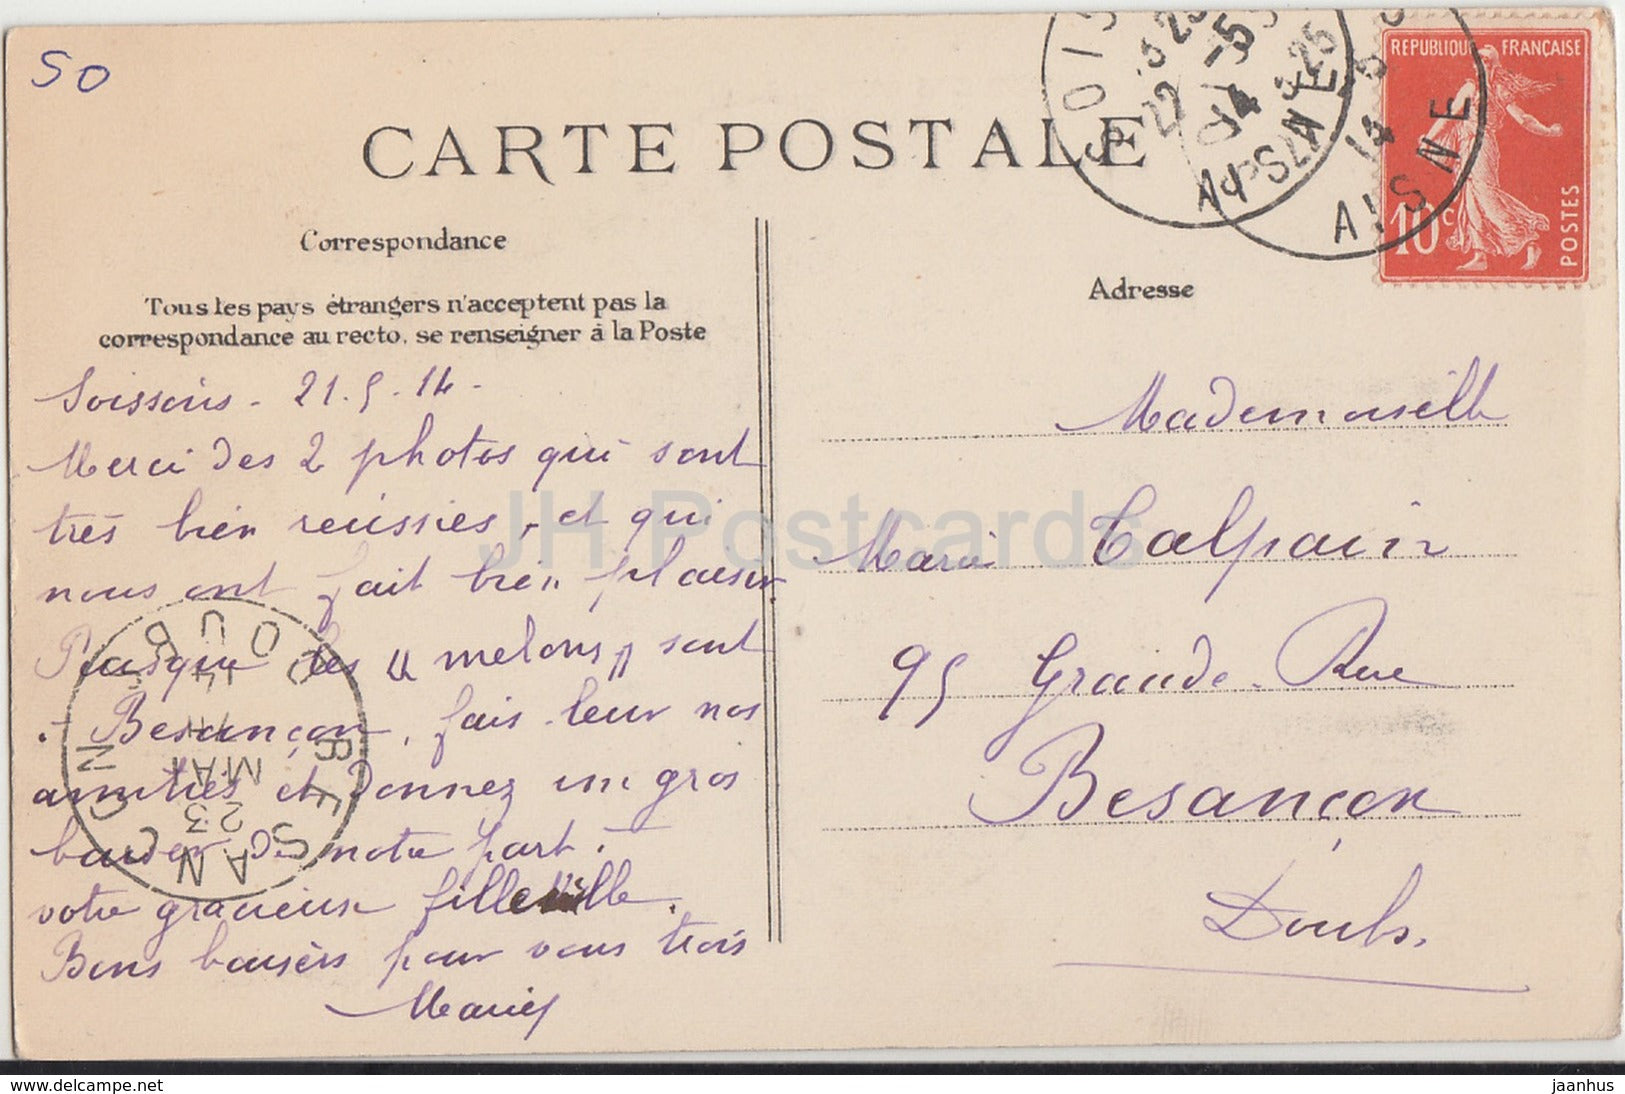 50
CARTE POSTALE
Correspondance
Tous les pays étrangers n'acceptent pas la
correspondance au recto, se renseigner à la Poste
Soissons - 21.5.14 -
Merci des 2 photos qui sont
très bien reussies, et qui
nous ont fait bien plaisir
Puisque les "melons" sont
Besançon, fais leur nos
amitiés et donnez un gros
baiser de notre part à
votre gracieuse fillette.
Bons baisers pour vous trois
Maries
Adresse
Mademoiselle
Marie Talpain
95 Grande Rue
Besançon
Doubs.
REPUBLIQUE FRANÇAISE
10c
POSTES
SOIS
AISNE
AISNE
BESANCON
DOUBS
23
MAI
14
JH Postcards
www.delcampe.net
jaanhus